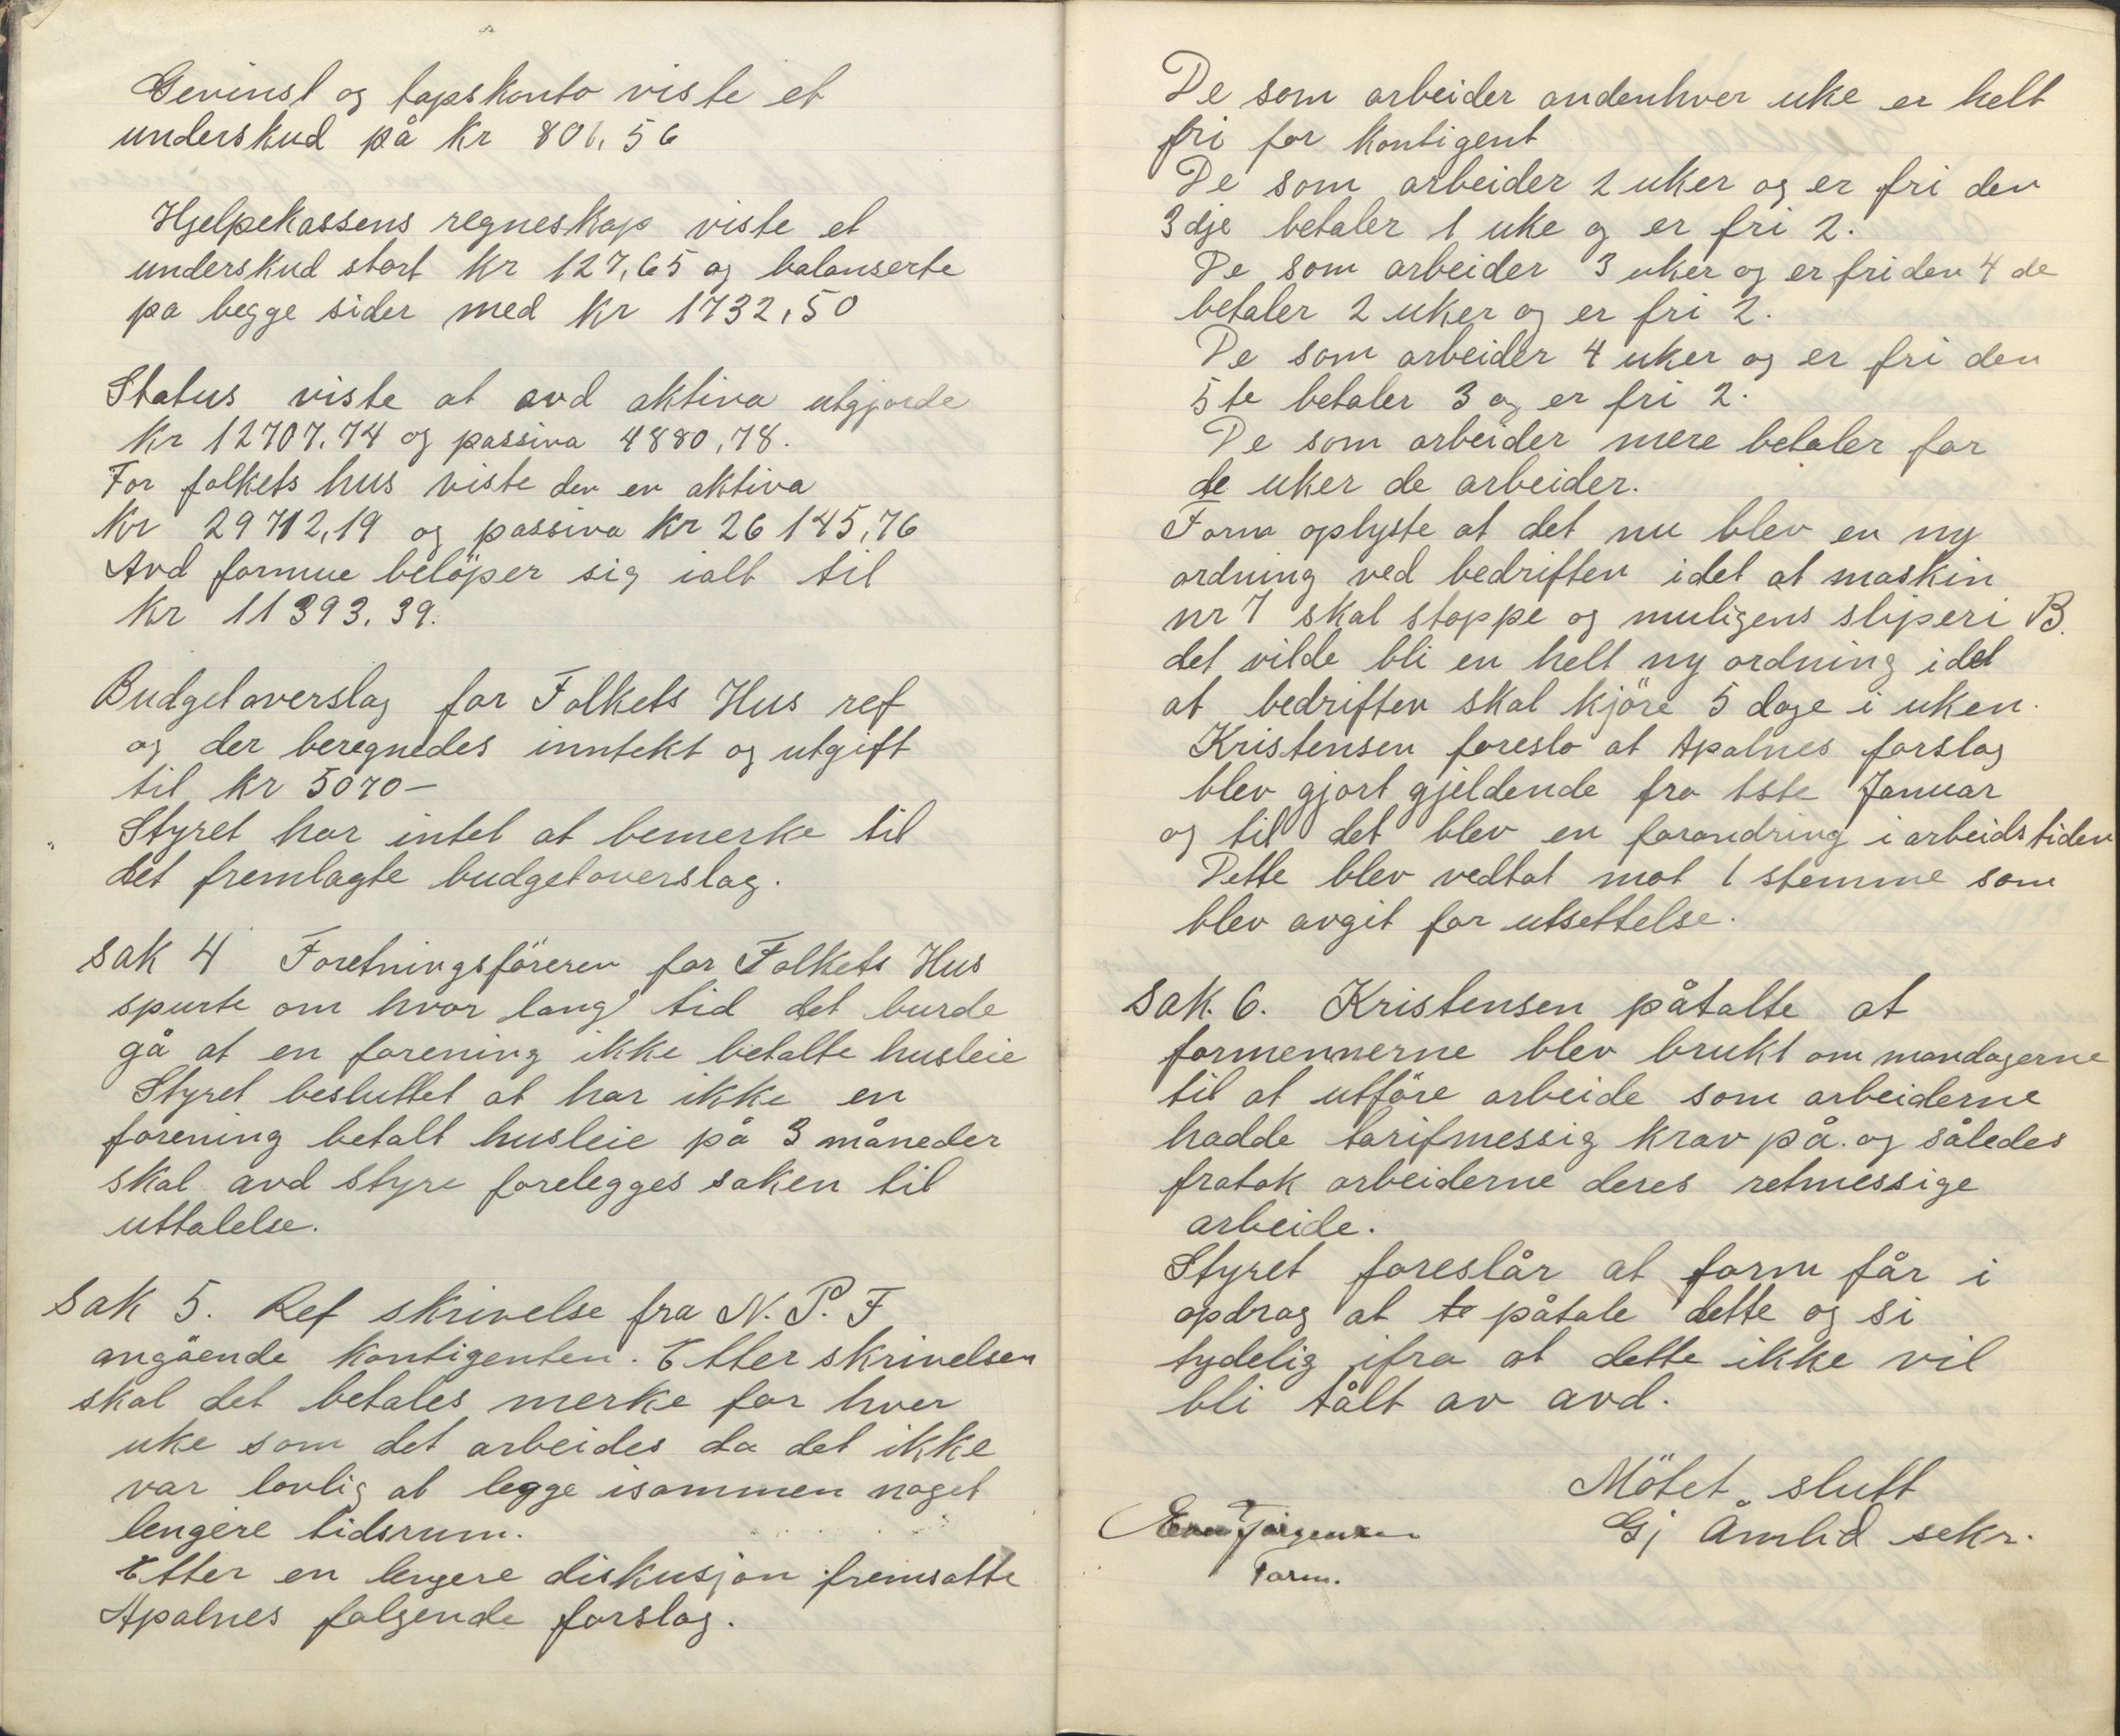 Gevinst og tapskonto viste et
underskud på kr 801,56
Hjelpekassens regneskap viste et
underskud stort kr 127,65 og balanserte
pa begge sider med kr 1732,50
Status viste at avd aktiva utgjorde
kr 12707.74 og passiva 4880,78.
For folkets hus viste den en aktiva
kr 29712,19 og passiva kr 26145,76
Avd formue belöper sig ialt til
kr 11393.39.
Budgetoverslag for Folkets Hus ref
og der beregnedes inntekt og utgift
til kr 5070-
Styret har intet at bemerke til
det fremlagte budgetoverslag.
Sak 4 Foretningsföreren for Folkets Hus
spurte om hvor lang tid det burde
gå at en forening ikke betalte husleie
Styret besluttet at har ikke en
forening betalt husleie på 3 måneder
skal avd styre forelegges saken til
uttalelse.
Sak 5. Ref skrivelse fra N. P. F
angående kontigenten. Etter skrivelsen
skal det betales merke for hver
uke som det arbeides da det ikke
var lovlig at legge isammen noget
lengere tidsrum.
Etter en lengere diskusjon fremsatte
Apalnes folgende forslag.
De som arbeider andenhver uke er helt
fri for kontigent
De som arbeider 2 uker og er fri den
3dje betaler 1 uke og er fri 2.
De som arbeider 3 uker og er fri den 4de
betaler 2 uker og er fri 2.
De som arbeider 4 uker og er fri den
5te betaler 3 og er fri 2.
De som arbeider mere betaler for
de uker de arbeider.
Form oplyste at det nu blev en ny
ordning ved bedriften idet at maskin
nr 7 skal stoppe og muligens sliperi B.
det vilde bli en helt ny ordning idet
at bedriften skal kjöre 5 dage i uken.
Kristensen foreslo at Apalnes forslag
blev gjort gjeldende fra 1ste Januar
og til det blev en forandring i arbeidstiden
Dette blev vedtat mot 1 stemme som
blev avgit for utsettelse.
Sak. 6. Kristensen påtalte at
formennerne blev brukt om mandagerne
til at utföre arbeide som arbeiderne
hadde tarifmessig krav på. og således
fratok arbeiderne deres retmessige
arbeide.
Styret foreslår at form får i
opdrag at te påtale dette og si
tydelig ifra at dette ikke vil
bli tålt av avd.
Mötet slutt
Gj Åmlid sekr.
Jörgensen
Form.